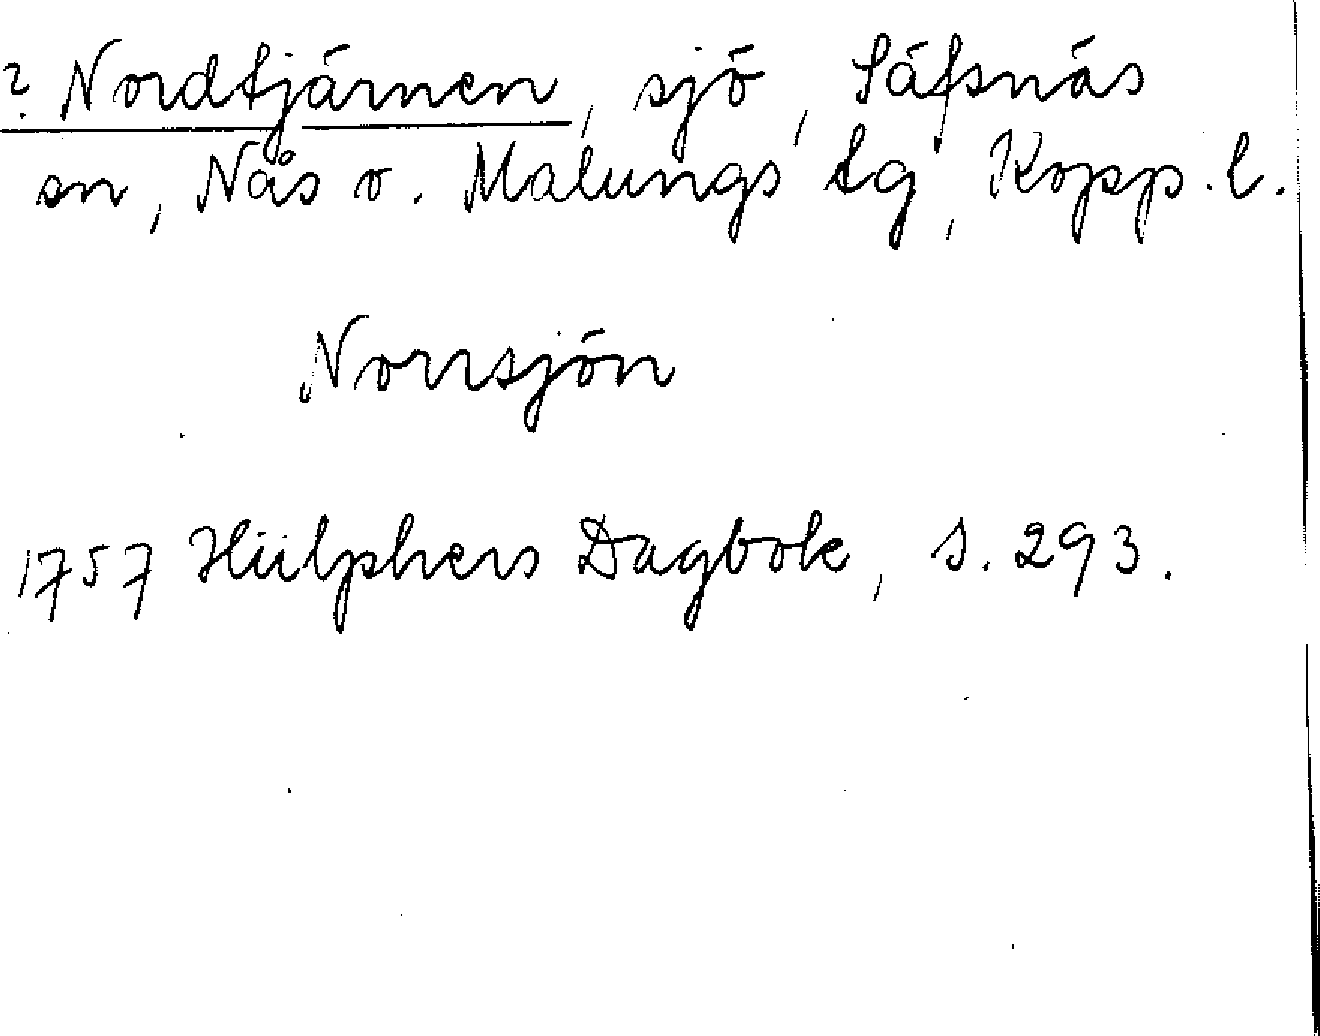 ? Nordtjärnen, sjö, Säfsnäs
sn, Nås o. Malungs tg, Kopp. l.
Norrsjön
1757 Hülphers Dagbok, s. 293.